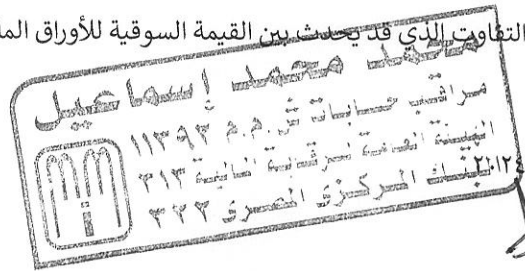 التفاوت الذي قد يحدث بين القيمة السوقية للأوراق الما
محمد محمد إسماعيل
مراقب حسابات ش.م.م ١١٣٩٣
الهيئة العامة للرقابة المالية ٣١٣
البنك المركزى المصرى ٣٢٢